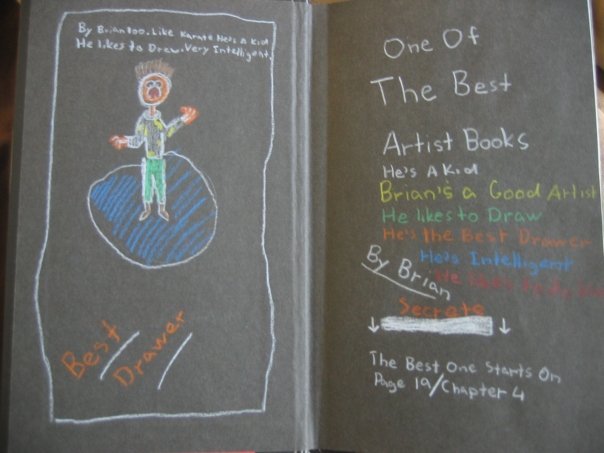 By Brian too. Like Karate He's A Kid
He likes to Drew. Very Intelligent.
Best
Drawer
One Of
The Best
Artist Books
He's A Kid
Brian's a Good Artist
He likes to Draw
He's the Best Drawer
He's Intelligent
He likes
By Brian
Secrets
The Best One Starts On
Page 19/Chapter 4